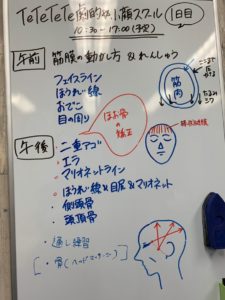 TeTeTeTe劇的小顔スクール 1日目
10:30-17:00(予定)
午前 筋膜の動かし方&れんしゅう
フェイスライン
ほうれい線
おでこ
目の周り
筋肉
たるみ
シワ
ほお骨
の
矯正
午後
・二重アゴ
・エラ
・マリオネットライン
・ほうれい線&目尾&マリオネット
・側頭骨
・頭頂骨
・通し練習